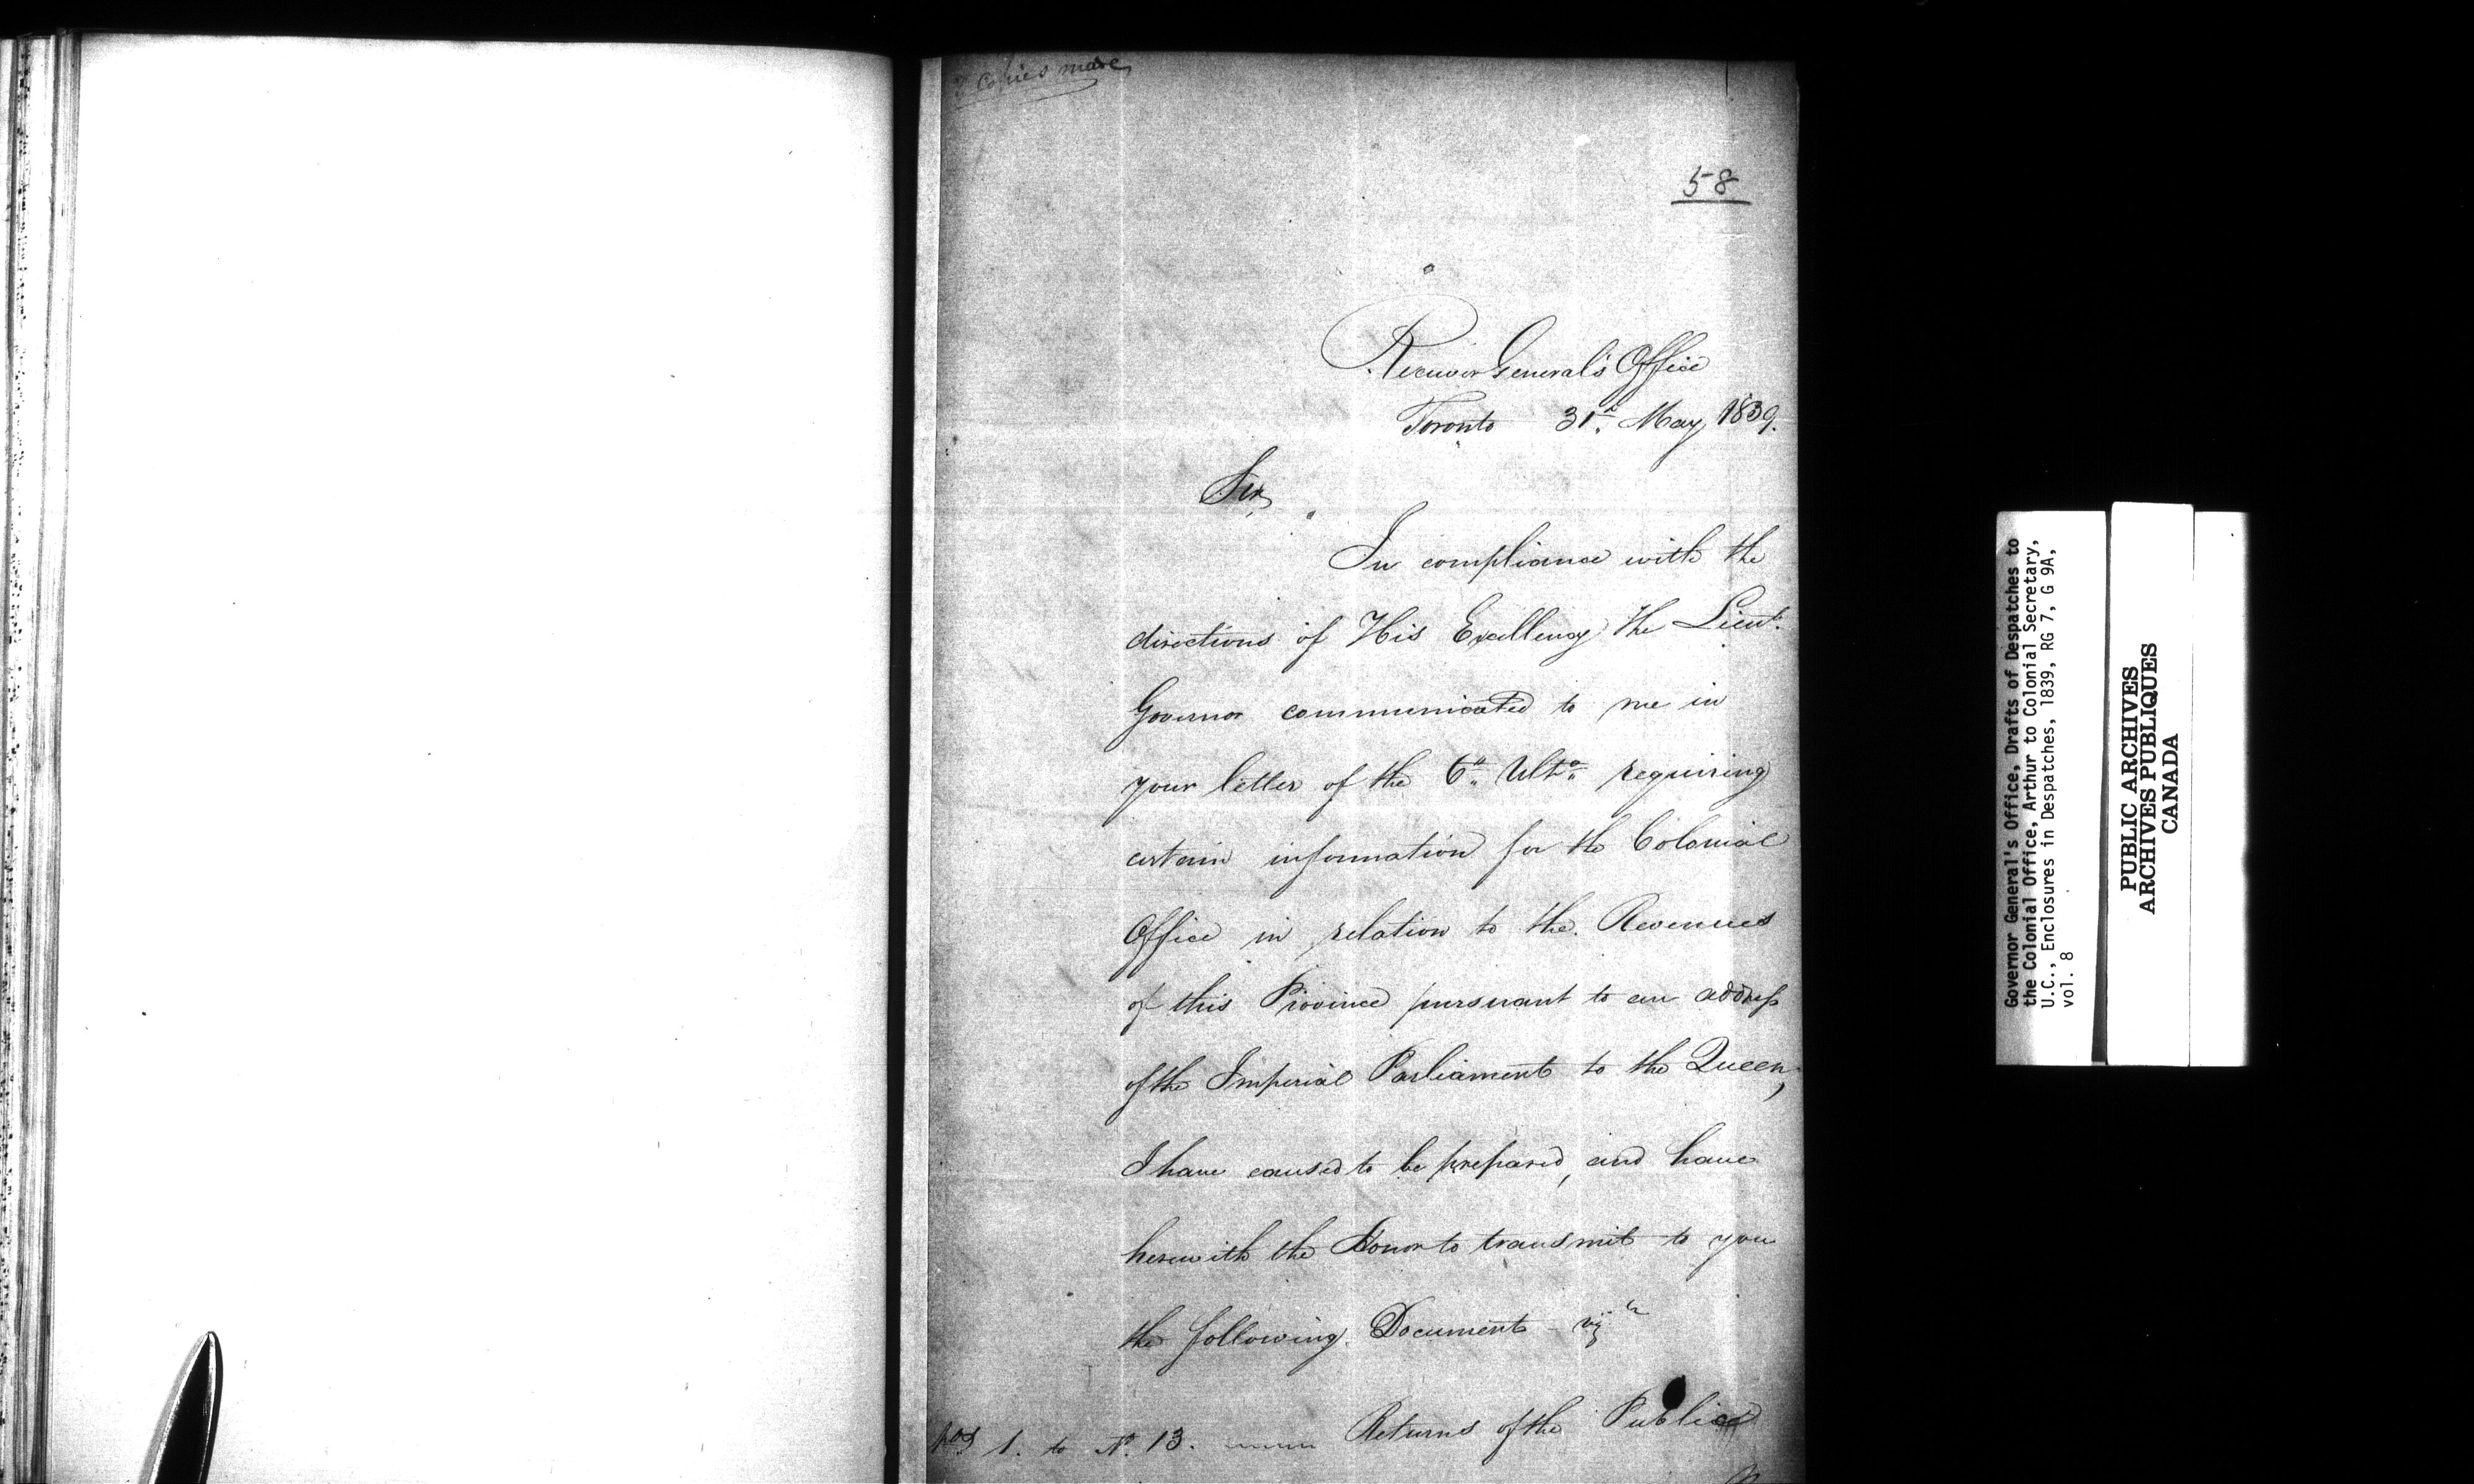 copies made
58
Receiver General's Office
Toronto 31st May 1839.
Sir,
In compliance with the
directions of His Excellency the Lieut.
Governor communicated to me in
your letter of the 6th Ulto requiring
certain information for the Colonial
Office in relation to the Revenues
of this Province pursuant to an address
of the Imperial Parliament to the Queen,
I have caused to be prepared, and have
herewith the Honor to transmit to you
the following Documents – viz
Nos 1. to No. 13. Returns of the Public
Governor General's Office, Drafts of Despatches to
the Colonial Office, Arthur to Colonial Secretary,
U.C., Enclosures in Despatches, 1839, RG 7, G 9A,
vol. 8
PUBLIC ARCHIVES
ARCHIVES PUBLIQUES
CANADA